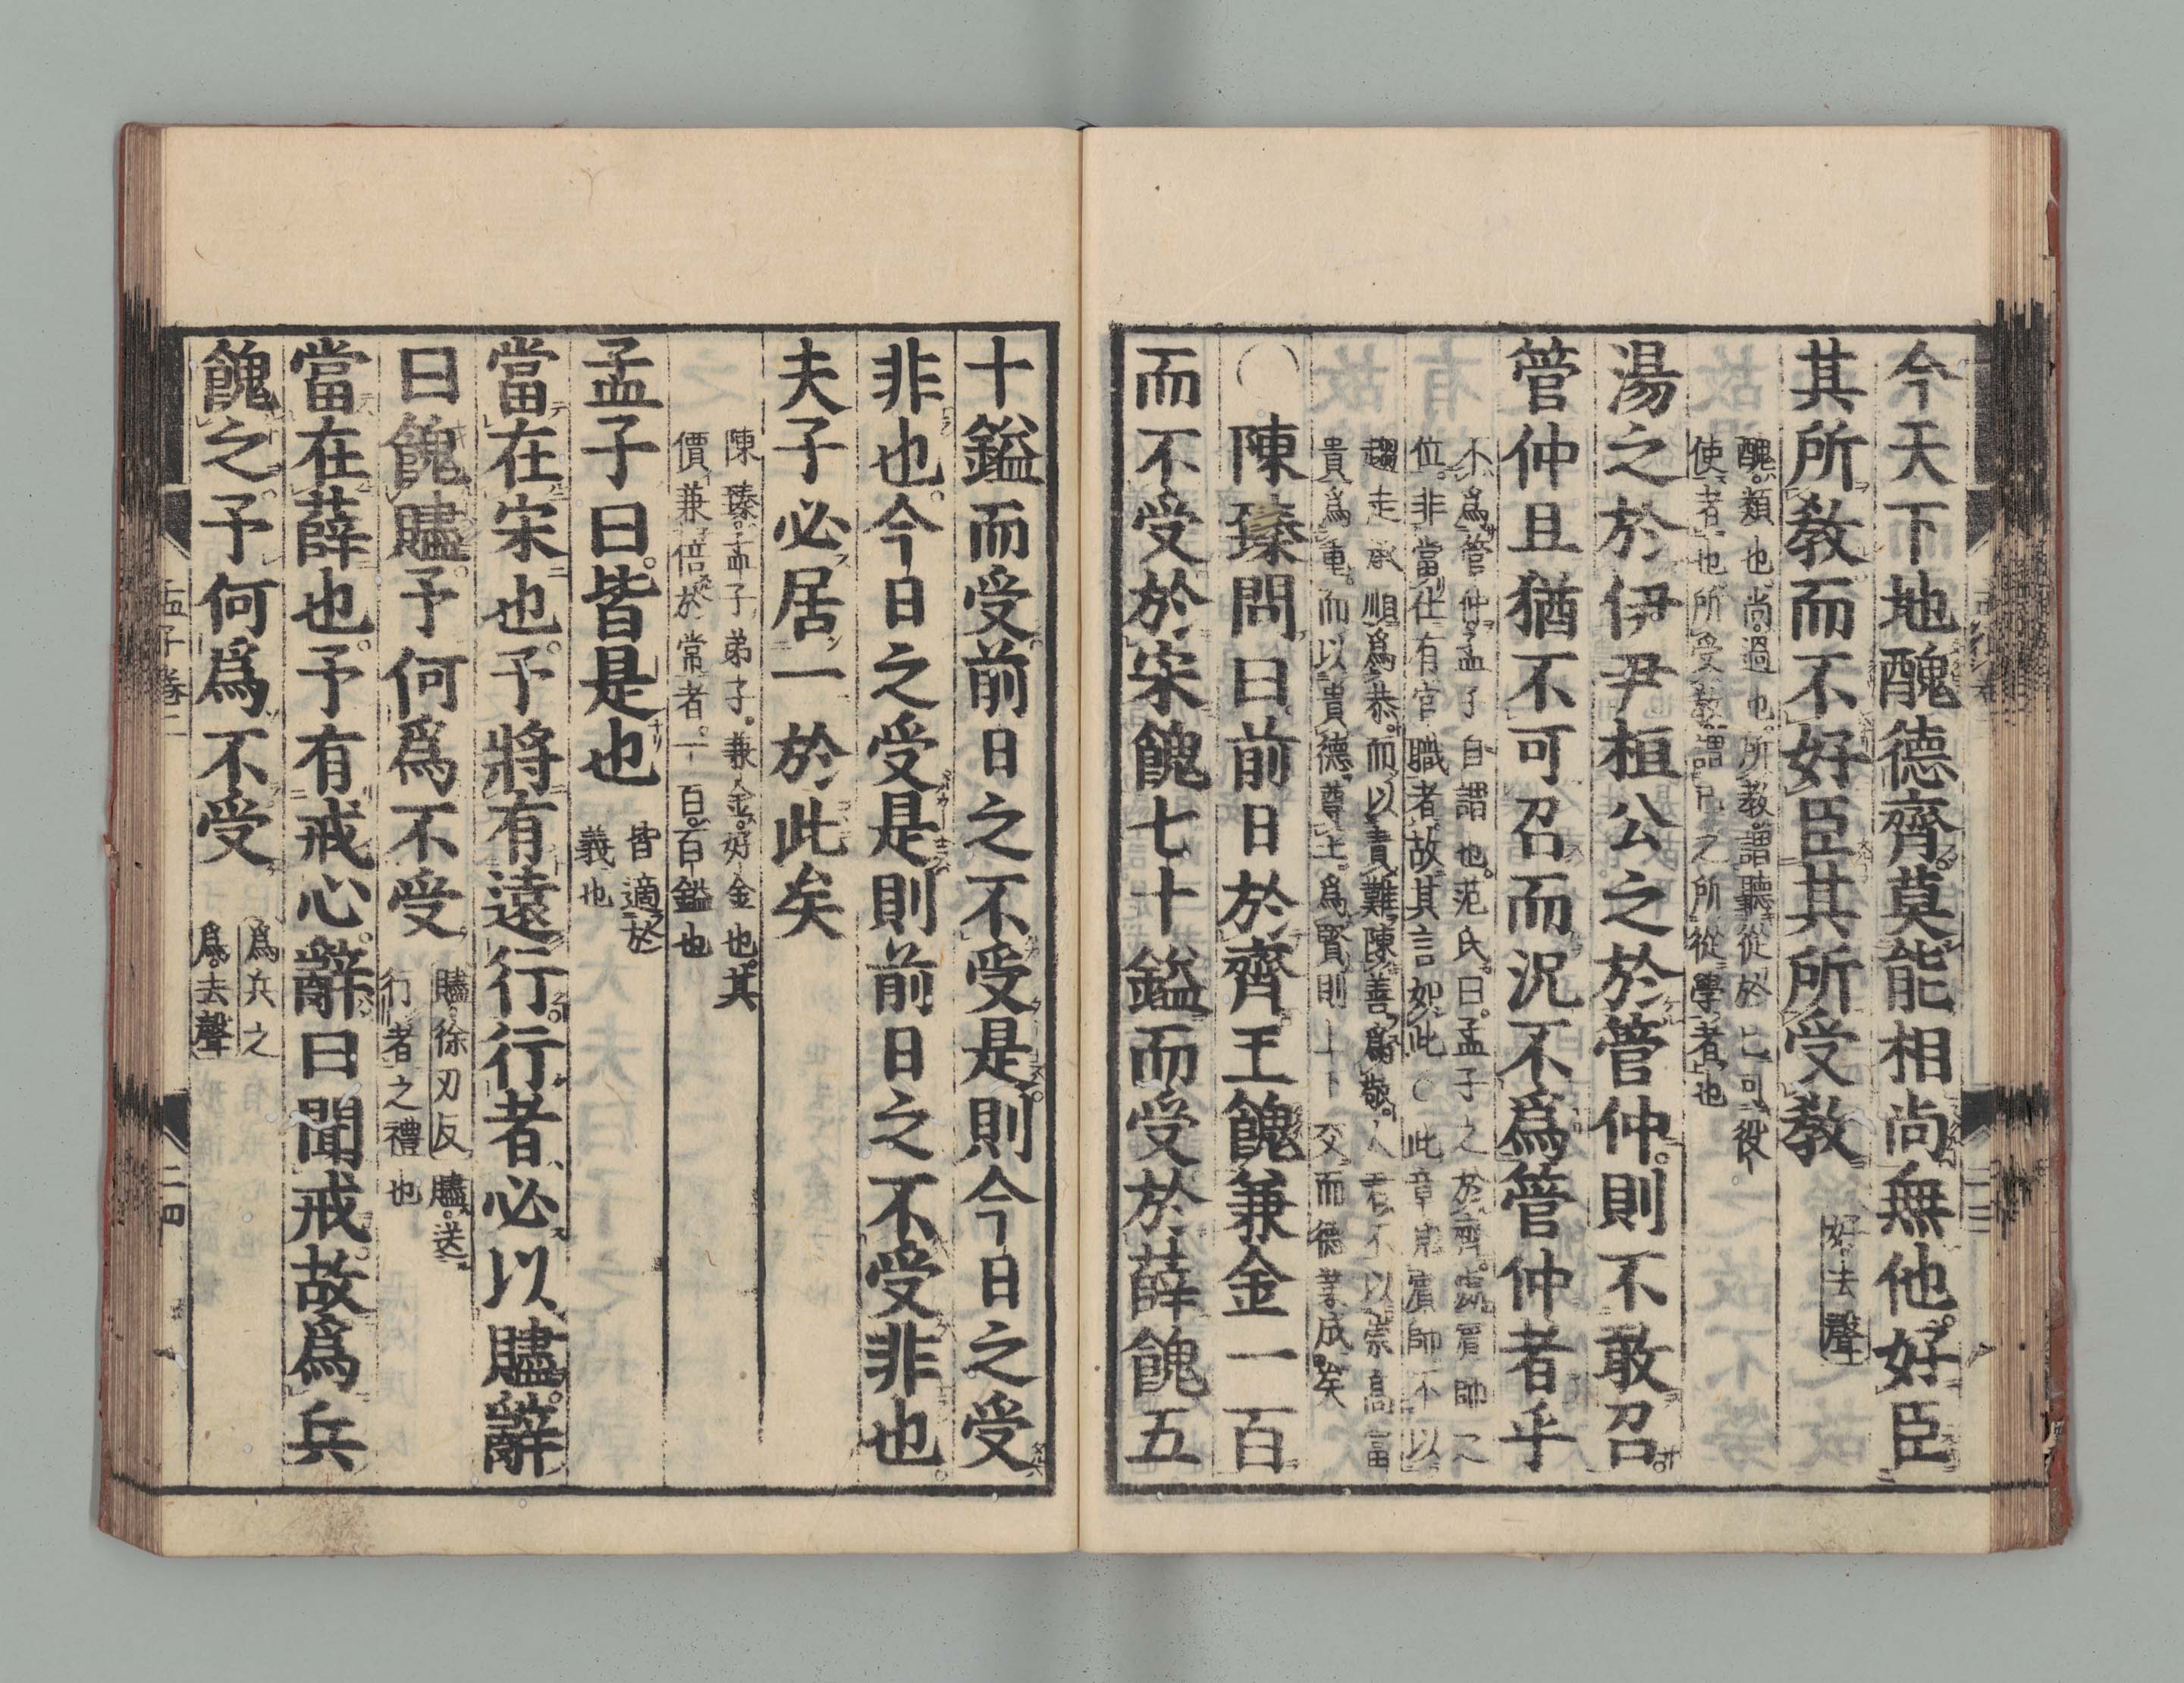 今天下地醜德齊莫能相尚無他好臣
其所教而不好臣其所受教
好去聲
醜類也尚過也所教謂聽從於己可役
使者也所受教謂己之所從學者也
湯之於伊尹桓公之於管仲則不敢召
管仲且猶不可召而況不爲管仲者乎
不爲管仲孟子自謂也范氏曰孟子之於齊處賓師之
位非當仕有官職者故其言如此○此章見賓師不以
趨走承順爲恭而以責難陳善爲敬人君不以崇高富
貴爲重而以貴德尊士爲賢則上下交而德業成矣
○陳臻問曰前日於齊王餽兼金一百
而不受於宋餽七十鎰而受於薛餽五
十鎰而受前日之不受是則今日之受
非也今日之受是則前日之不受非也
夫子必居一於此矣
陳臻孟子弟子兼金好金也其
價兼倍於常者一百百鎰也
孟子曰皆是也
皆適於
義也
當在宋也予將有遠行行者必以贐辭
曰餽贐予何爲不受
贐徐刃反贐送
行者之禮也
當在薛也予有戒心辭曰聞戒故爲兵
餽之予何爲不受
爲兵之
爲去聲
孟子卷二
二四